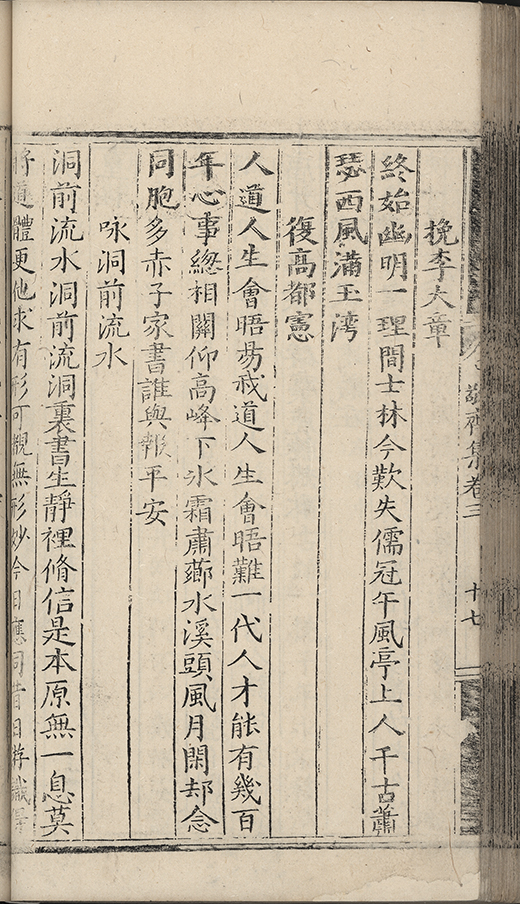 集卷三
十七
挽李大章
終始幽明一理間士林今歎失儒冠午風亭上人千古蕭
瑟西風滿玉灣
復高都憲
人道人生會晤易我道人生會晤難一代人才能有幾百
年心事緫相關仰高峰下氷霜肅薌水溪頭風月閑却念
同胞多赤子家書誰與報平安
咏洞前流水
洞前流水洞前流洞裏書生靜裡脩信是本原無一息莫
將道體更他求有形可覩無形妙今日應同昔日存識